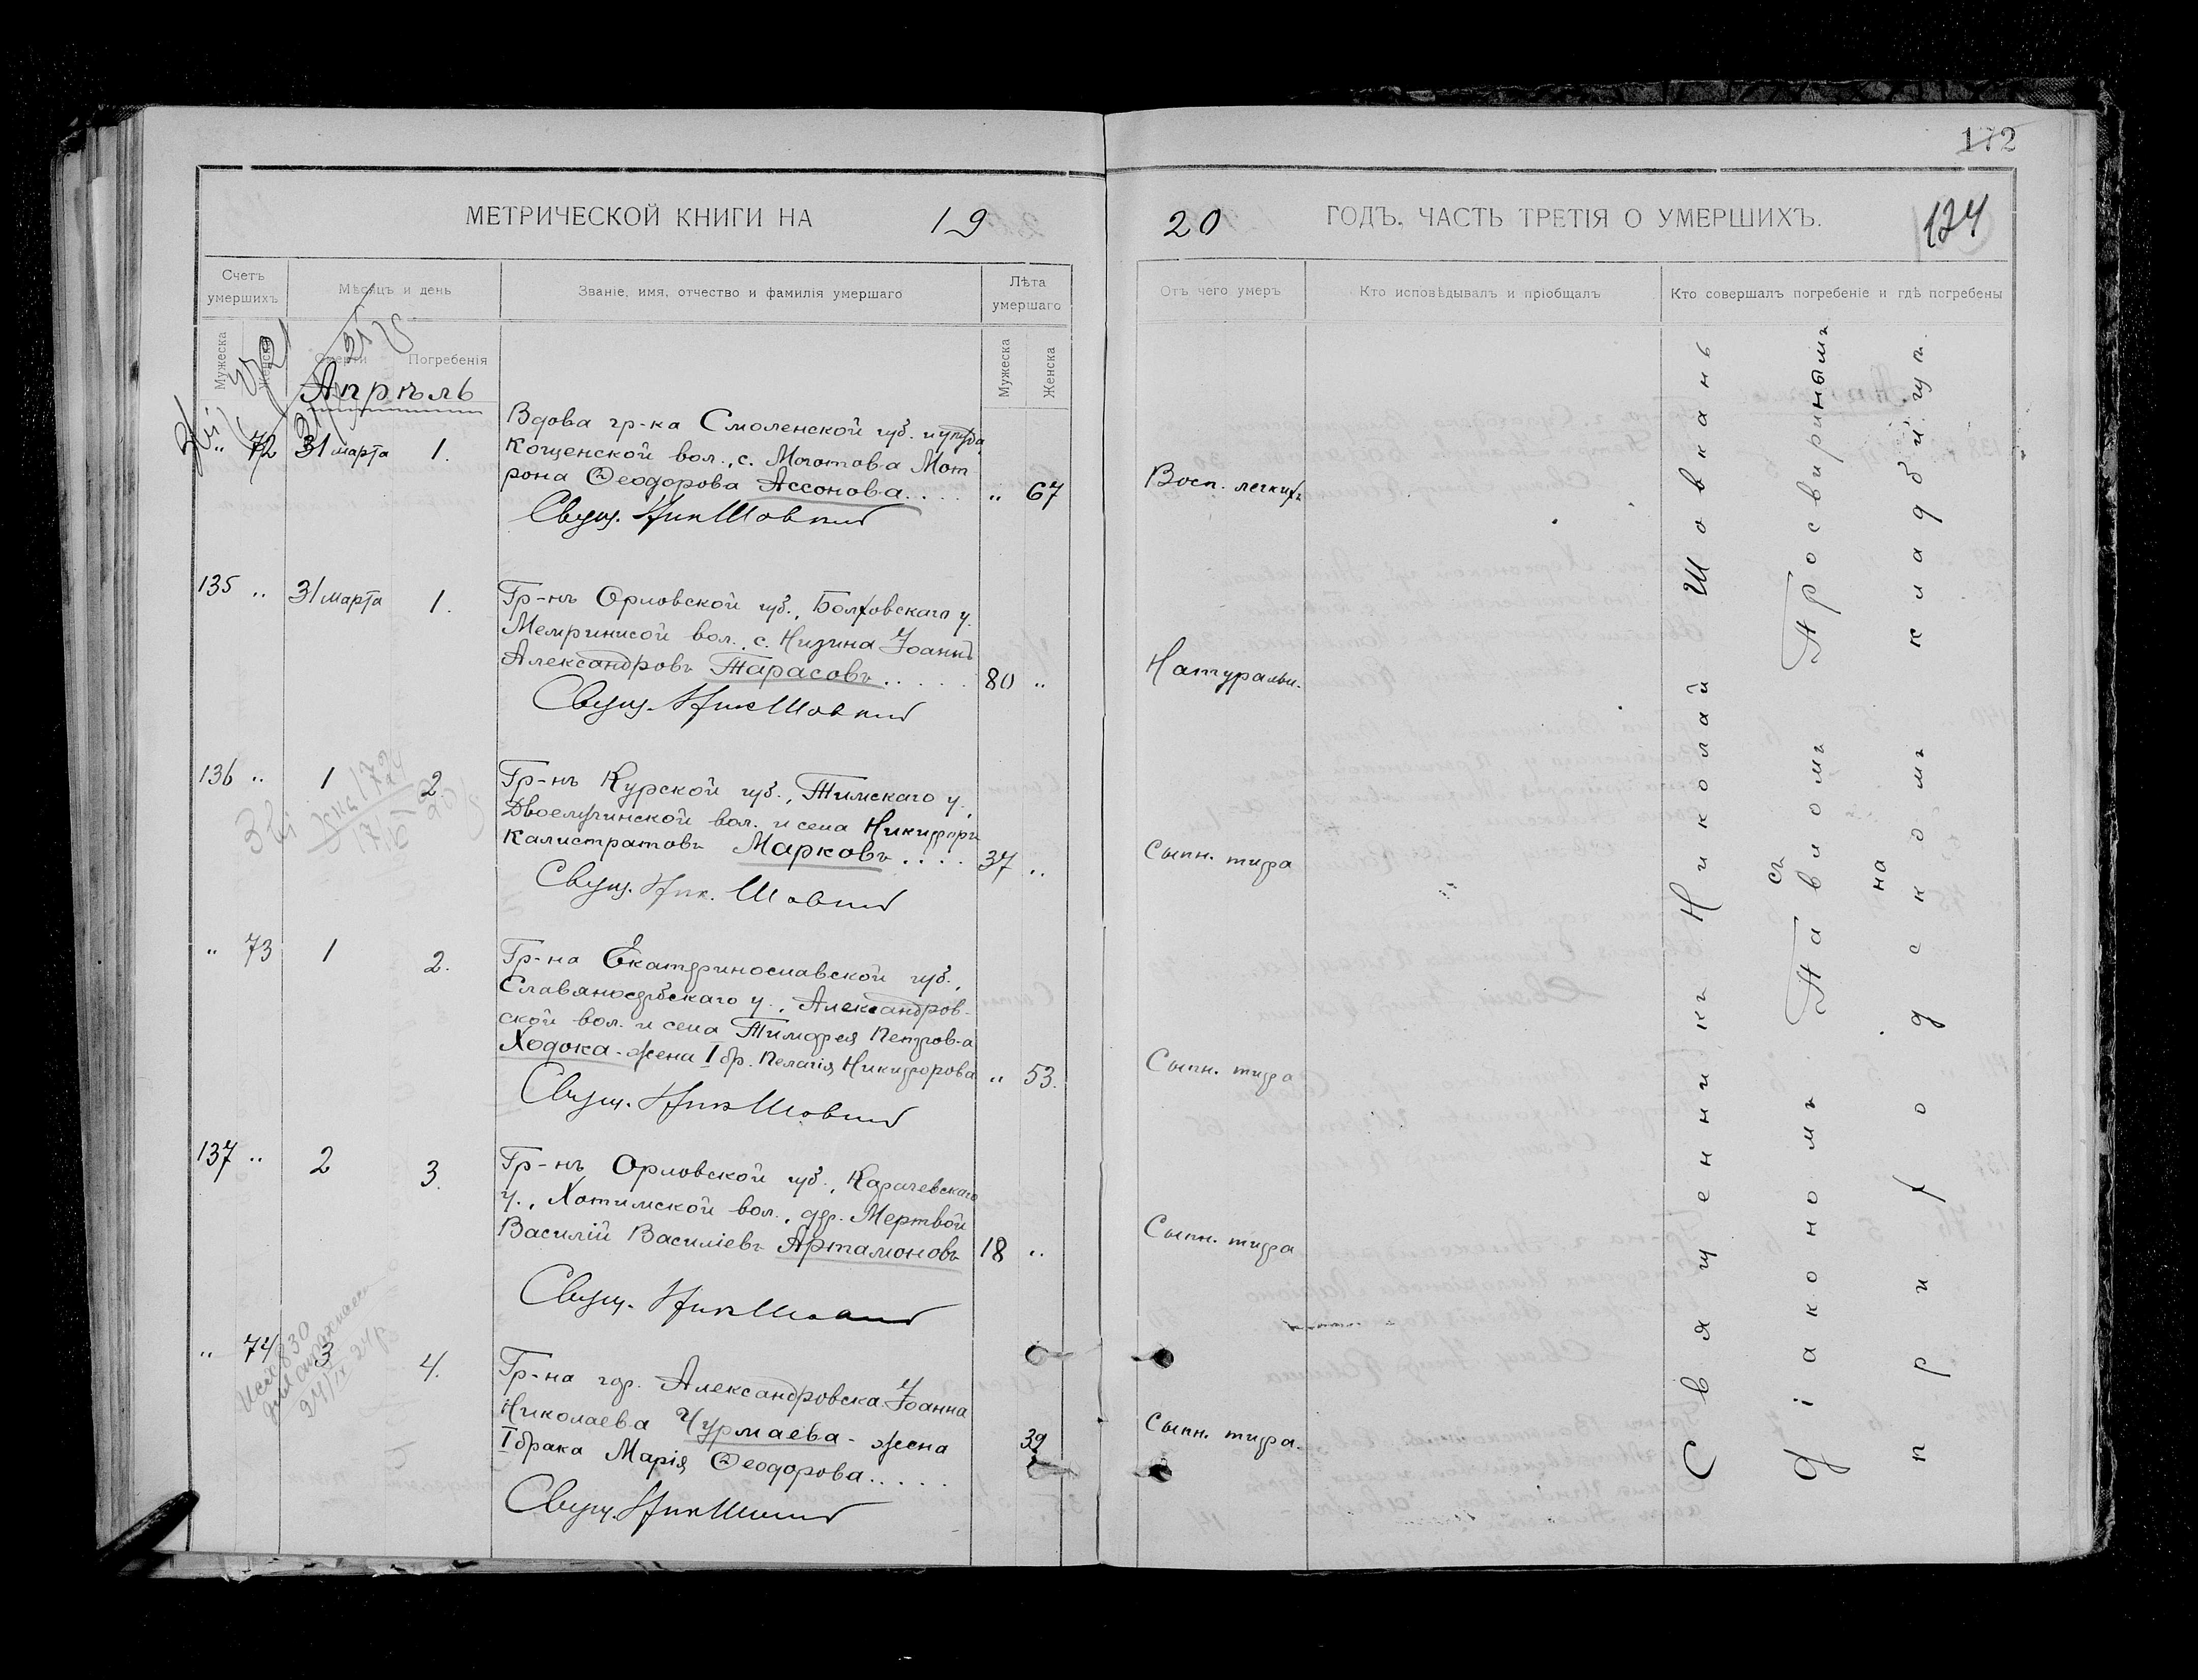 172
МЕТРИЧЕСКОЙ КНИГИ НА 19
20 ГОДЪ, ЧАСТЬ ТРЕТІЯ О УМЕРШИХЪ.
124
Счетъ умершихъ
Мѣсяцъ и день
Званіе, имя, отчество и фамилія умершаго
Лѣта умершаго
Отъ чего умеръ
Кто исповѣдывалъ и пріобщалъ
Кто совершалъ погребеніе и гдѣ погребены
Мужеска
Женска
Смерти
Погребенія
Мужеска
Женска
Апрѣль
„ 72 31 марта 1.
Вдова гр-ка Смоленской губ. и уѣзда,
Кощенской вол., с. Моготова Мот
рона Ѳеодорова Ассонова.... „ 67
Восп. легкихъ
Свящ. Ник Шовкань
135 „ 31 марта 1.
Гр-нъ Орловской губ., Болховскаго у.
вол., с. Низина Іоаннъ
Александровъ Тарасовъ..... 80 „
Натуральн.
Свящ. Ник Шовкань
136 „ 1 2.
Гр-нъ Курской губ., Тимскаго у.,
Двоелучинской вол. и села Никифоръ
Калистратовъ Марковъ.... 37 „
Сыпн. тифа
Свящ. Ник. Шовкань
„ 73 1 2.
Гр-на Екатеринославской губ.,
Славяносербскаго у., Александров-
ской вол. и села Тимофея Петров-а
Ходока - жена I бр. Пелагія Никифорова „ 53.
Сыпн. тифа
Свящ. Ник Шовкань
137 „ 2 3.
Гр-нъ Орловской губ., Карачевскаго
у., Хотимской вол., дер. Мертвой
Василій Василіевъ Артамоновъ 18 „
Сыпн. тифа
Свящ. Ник Шовкань
„ 74 3 4.
Гр-на гор. Александровска Іоанна
Николаева Чурмаева - жена
I брака Марія Ѳеодорова..... 39
Сыпн. тифа.
Свящ. Ник Шовкань
Священникъ Николай Шовкань
съ
діакономъ Павломъ Просвиринымъ
на
приходскомъ кладбищѣ.